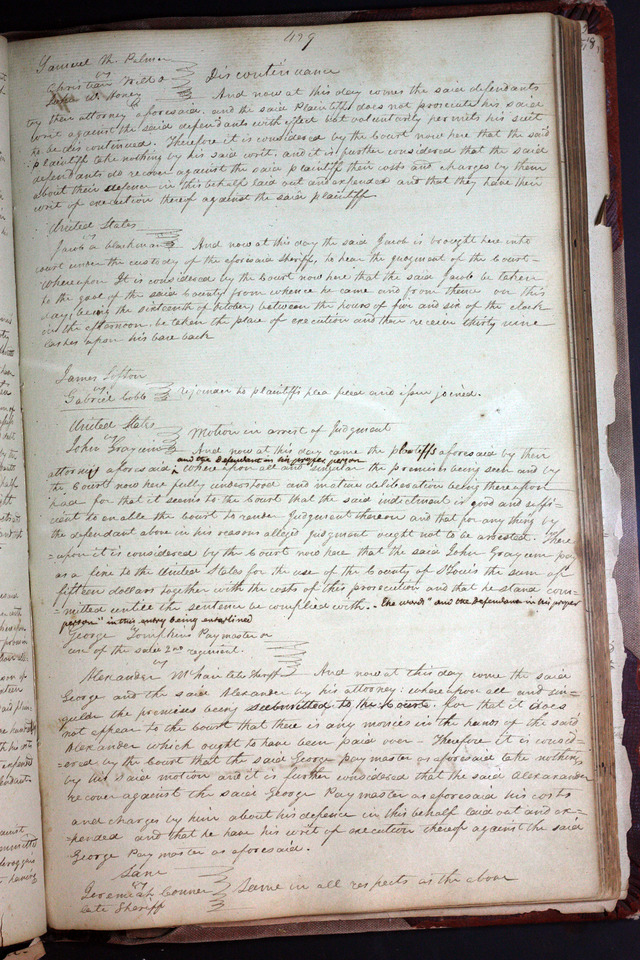 429
Samuel M. Palmer
vs
Christian Wilt &
John W. Honey
Discontinuance
And now at this day comes the said defendants
by their attorney aforesaid, and the said Plaintiff does not prosecute his said
writ against the said defendants with effect but voluntarily permits his suit
to be discontinued. Therefore it is considered by the Court now here that the said
plaintiff take nothing by his said writ, and it is further considered that the said
defendants do recover against the said plaintiff their costs and charges by them
about their defence in this behalf laid out and expended and that they have their
writ of execution thereof against the said plaintiff
United States
vs
Jacob a blackman
And now at this day the said Jacob is brought here into
court under the custody of the aforesaid sheriff, to hear the judgment of the Court-
Whereupon It is considered by the Court now here that the said Jacob be taken
to the gaol of the said County from whence he came and from thence on this
day, being the sixteenth of October, between the hours of five and six of the clock
in the afternoon, be taken the place of execution and there receive thirty nine
lashes upon his bare back
James Lofton
vs
Gabriel Cobb
rejoinder to plaintiffs plea filed and issue joined.
United States
vs
John Grayum
Motion in arrest of Judgment
And now at this day came the plaintiffs aforesaid by their
and the defendant in his proper person
attorney aforesaid, Whereupon all and singular the premises being seen and by
the Court now here fully understood and mature deliberation being thereupon
had for that it seems to the Court that the said indictment is good and suffi-
cient to enable the Court to render Judgment thereon and that for any thing by
the defendant above in his reasons alleged Judgment ought not to be arrested. There
=upon it is considered by the Court now here that the said John Grayum pay
as a fine to the United States for the use of the County of St Louis the sum of
fifteen dollars together with the costs of this prosecution and that he stand com-
=mitted untill the sentence be complied with. - The words "and the defendant in his proper
person" in this entry being enterlined
George Tompkins Paymaster &
of the said 2nd regiment.
vs
Alexander McNair late Sheriff
And now at this day come the said
George and the said Alexander by his attorney: whereupon all and sin-
gular the premises being submitted to the Court, for that it does
not appear to the Court that there is any monies in the hands of the said
Alexander which ought to have been paid over - Therefore it is consid-
=ered by the Court that the said George Paymaster as aforesaid take nothing
by his said motion and it is further considered that the said Alexander
recover against the said George Paymaster as aforesaid his costs
and charges by him about his defence in this behalf laid out and ex-
=pended and that he have his writ of execution thereof against the said
George Paymaster as aforesaid.
Same
vs
Jeremiah Conner
late Sheriff
Same in all respects as the above